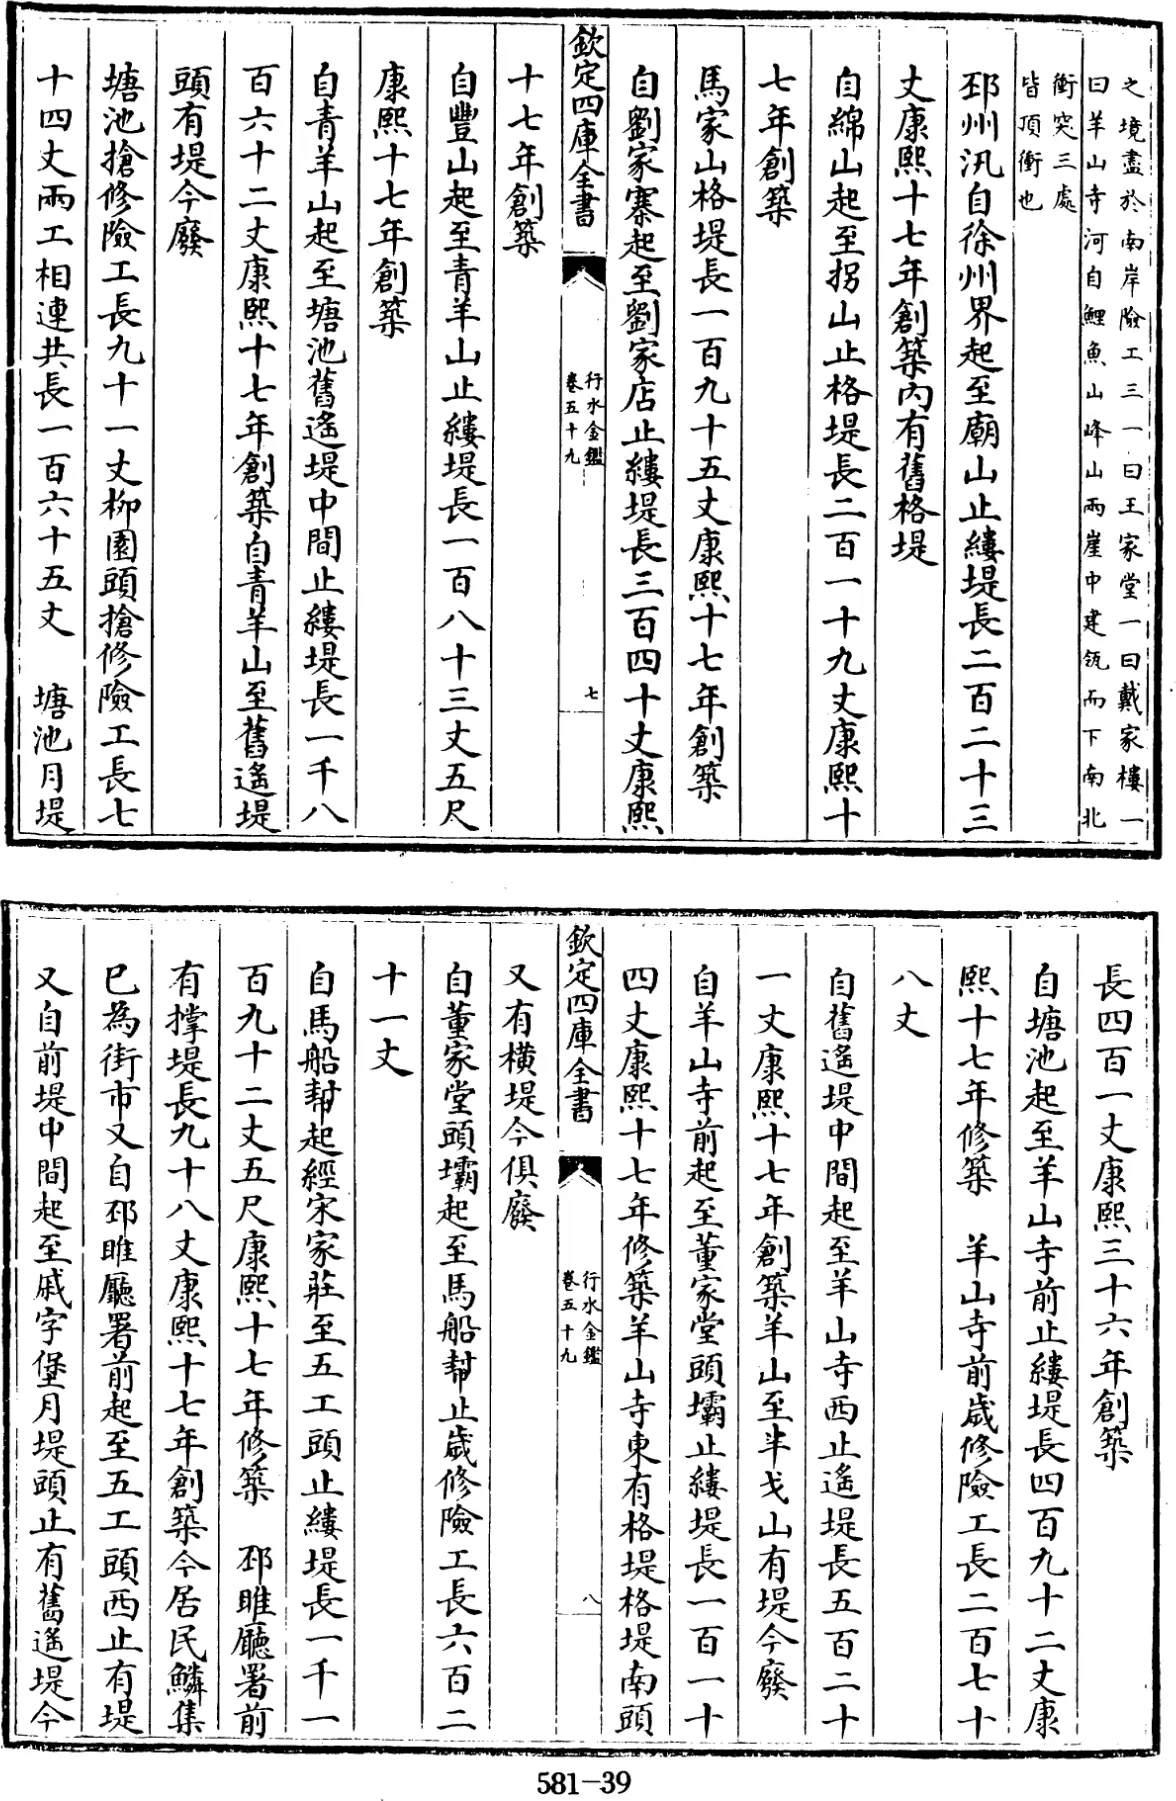 之境盡於南岸險工三一曰王家堂一曰戴家樓一
曰羊山寺河自鯉魚山峰山兩崖中建瓴而下南北
衝突三處
皆頂衝也
邳州汛自徐州界起至廟山止縷堤長二百二十三
丈康熙十七年創築内有舊格堤
自綿山起至拐山止格堤長二百一十九丈康熙十
七年創築
馬家山格堤長一百九十五丈康熙十七年創築
自劉家寨起至劉家店止縷堤長三百四十丈康熙
欽定四庫全書
行水金鑑
卷五十九
七
十七年創築
自豐山起至青羊山止縷堤長一百八十三丈五尺
康熙十七年創築
自青羊山起至塘池舊遙堤中間止縷堤長一千八
百六十二丈康熙十七年創築自青羊山至舊遙堤
頭有堤今廢
塘池搶修險工長九十一丈柳園頭搶修險工長七
十四丈兩工相連共長一百六十五丈　塘池月堤
長四百一丈康熙三十六年創築
自塘池起至羊山寺前止縷堤長四百九十二丈康
熙十七年修築　羊山寺前歲修險工長二百七十
八丈
自舊遙堤中間起至羊山寺西止遙堤長五百二十
一丈康熙十七年創築羊山至半戈山有堤今廢
自羊山寺前起至董家堂頭壩止縷堤長一百一十
四丈康熙十七年修築羊山寺東有格堤格堤南頭
欽定四庫全書
行水金鑑
卷五十九
八
又有橫堤今俱廢
自董家堂頭壩起至馬船幇止歲修險工長六百二
十一丈
自馬船幇起經宋家莊至五工頭止縷堤長一千一
百九十二丈五尺康熙十七年修築　邳睢廳署前
有撑堤長九十八丈康熙十七年創築今居民鱗集
已為街市又自邳睢廳署前起至五工頭西止有堤
又自前堤中間起至戚字堡月堤頭止有舊遙堤今
581-39